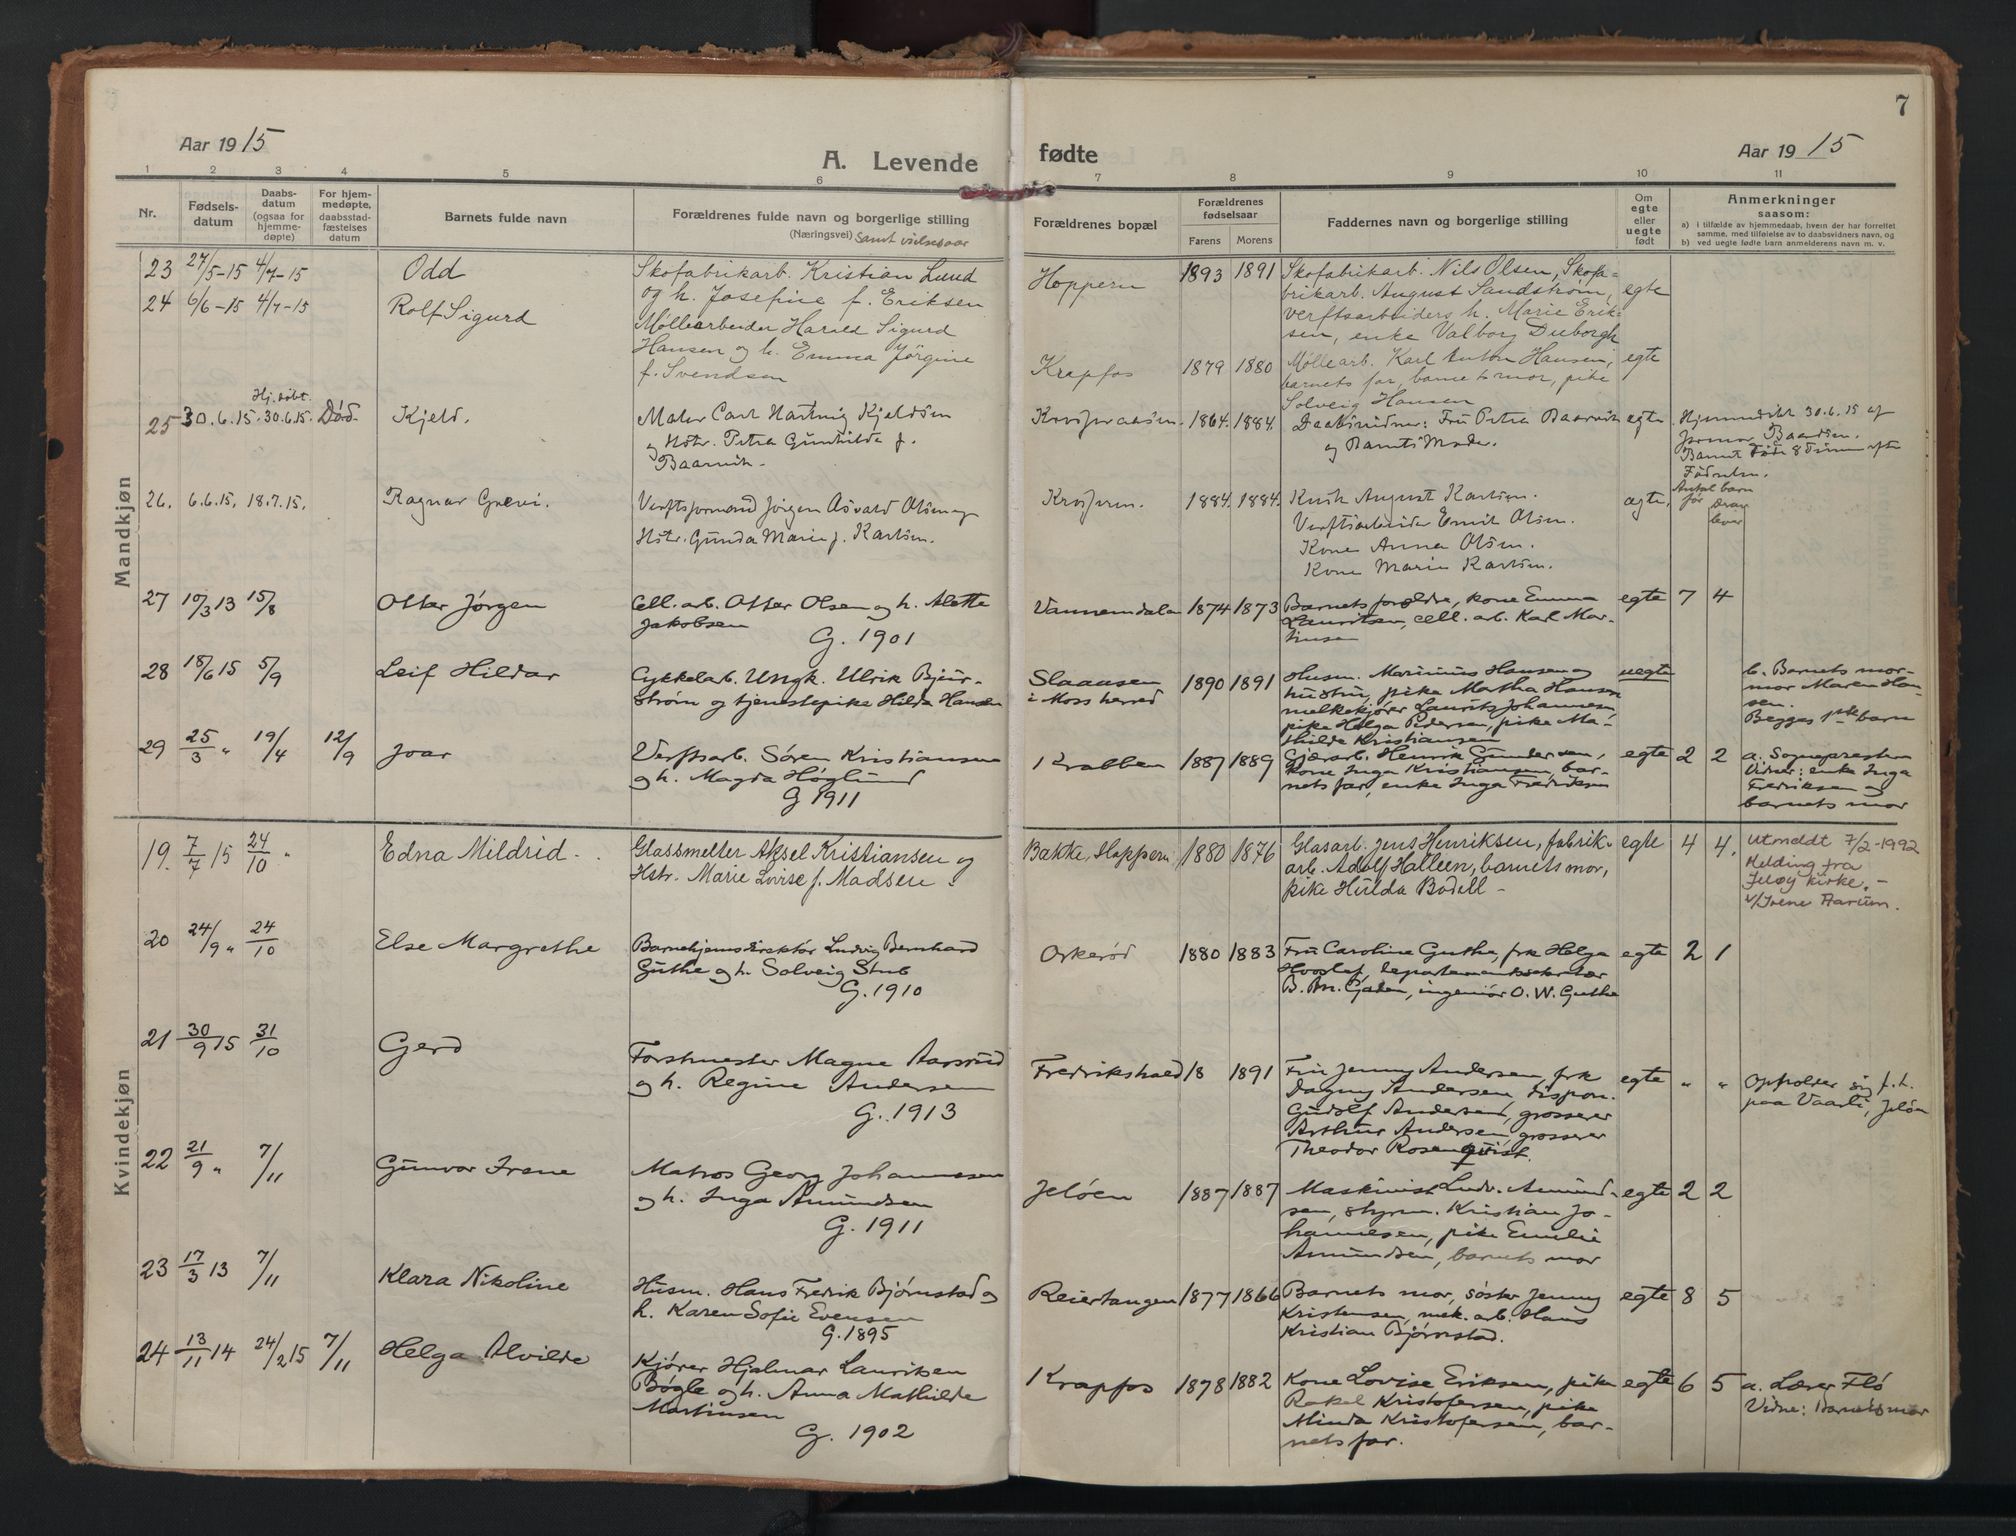 7
Aar 1915
A. Levende
fødte
Aar 1915
1 2 3 4 5 6 7 8 9 10 11
Nr.
Fødsels-
datum
Daabs-
datum
(ogsaa for
hjemme-
døpte)
For hjem-
medøpte,
daabsstad-
fæstelses
datum
Barnets fulde navn
Forældrenes fulde navn og borgerlige stilling
(Næringsvei) samt vielsesaar
Forældrenes bopæl
Forældrenes
fødselsaar
Farens Morens
Faddernes navn og borgerlige stilling
Om
egte
eller
uegte
født
Anmerkninger
saasom:
a) i tilfælde av hjemmedaab, hvem der har forrettet
samme, med tilføielse av to daabsvidners navn, og
b) ved uegte fødte barn anmelderens navn m. v.
Mandkjøn
23 27/5-15 4/7-15 Odd
Skofabrikarb. Kristian Lund
og h. Josefine f. Eriksen
Hoppern 1893 1891
Skofabrikarb. Nils Olsen, Skofa-
brikarb. August Sandstrøm,
verftsarbeiders h. Marie Erik-
sen, enke Valborg Duborgh
egte
24 6/6-15 4/7-15 Rolf Sigurd
Møllearbeider Harald Sigurd
Hansen og h. Emma Jørgine
f. Svendsen
Krapfos 1879 1880
Møllearb. Karl Anton Hansen,
barnets far, barnets mor, pike
Solveig Hansen
egte
25 30.6.15. Hj. døbt. 30.6.15. Død. Kjeld.
Maler Carl Hartvig Kjeldsen
og Hstr. Petra Gunhilda f.
Baarvik.
1864. 1884.
Daabsvidner: Fru Petra Baarvik
og Barnets Moder.
egte.
Hjemmedøbt 30.6.15 af
Jormor Baardsen.
Barnet døde 8 Timer efter
Fødselen.
Antal barn
før Derav
lever
26. 6.6.15. 18.7.15. Ragnar Grevi.
Verftsformand Jørgen Asvald Olsen og
Hstr. Gunda Marie f. Karlsen.
1884. 1884.
Kusk August Karlsen.
Verftsarbeider Emil Olsen.
Kone Anna Olsen.
Kone Marie Karlsen.
egte.
27 10/3 13 15/8 Ottar Jørgen
Cell. arb. Ottar Olsen og h. Alette
Jakobsen
G. 1901
Vannemdalen 1874 1873
Barnets forældre, kone Emma
Lauritsen, cell. arb. Karl Mar-
tinsen
egte 7 4
28 18/6 15 5/9 Leif Hildar
Cykkelarb. Ungk. Ulrik Bjur-
strøm og tjenestepike Hilda Hansen
Slaaasen
i Moss herred 1890 1891
Husm. Marinius Hansen og
hustru, pike Martha Hansen
melkekjører Laurits Johannesen,
pike Helga Pedersen, pike Ma-
thilde Kristiansen
uegte
b. Barnets mor-
mor Maren Han-
sen.
Begges 1ste barn
29 25/3 " 19/4 12/9 Joar
Verftsarb. Søren Kristiansen
og h. Magda Høglund
G 1911
Krabben 1887 1889
Gjærarb. Henrik Gundersen,
kone Inga Kristiansen, bar-
nets far, enke Inga Fredriksen
egte 2 2
a. Sognepresten
Vidner: enke Inga
Fredriksen og
barnets mor
Kvindekjøn
19. 7/7 15 24/10 " Edna Mildrid.
Glassmelter Aksel Kristiansen og
Hstr. Marie Lovise f. Madsen.
Bakke, Hoppern 1880 1876
Glasarb. Jens Henriksen, fabrik-
arb. Adolf Halleen, barnets mor,
pike Hulda Bodell -
egte 4 4.
Utmeldt 7/2-1992
Melding fra
Jeløy kirke. -
v/Irene Aarum.
20 24/9 " 24/10 Else Margrethe
Barnehjemsdirektør Ludvig Bernhard
Guthe og h. Solveig Stub
G. 1910
Orkerød 1880 1883
Fru Caroline Guthe, frk Helga
Hvoslef, departementssekretær
B. Bn. Gjaden, ingeniør O. W. Guthe
egte 2 1
21 30/9 15 31/10 Gerd
Forstmester Magne Aarsrud
og h. Regine Andersen
G. 1913
Fredrikshald 18 1891
Fru Jenny Andersen, frk
Dagny Andersen, dispon.
Gudolf Andersen, grosserer
Arthur Andersen, grosserer
Theodor Rosenqvist.
egte " "
Opholder sig f. t.
paa Vaarli, Jeløen
22 21/9 " 7/11 Gunvor Irene
Matros Georg Johannessen
og h. Inga Amundsen
G. 1911
Jeløen 1887 1887
Maskinist Ludv. Amund-
sen, styrm. Kristian Jo-
hannesen, pike Emilie
Amundsen, barnets mor
egte 2 2
23 17/3 13 7/11 Klara Nikoline
Husm. Hans Fredrik Bjørnstad og
h. Karen Sofie Evensen
G. 1895
Reiertangen 1877 1866
Barnets mor, søster Jenny
Kristensen, mek. arb. Hans
Kristian Bjørnstad.
egte 8 5
24 13/11 14 24/2 15 7/11 Helga Alvilde
Kjører Hjalmar Lauritsen
Bøgle og h. Anna Mathilde
Martinsen
G. 1902
Krapfos 1878 1882
Kone Lovise Eriksen, pike
Rakel Kristofersen, pike
Minda Kristofersen, bar-
nets far.
egte 6 5
a. Lærer Flø
Vidne: Barnets mor